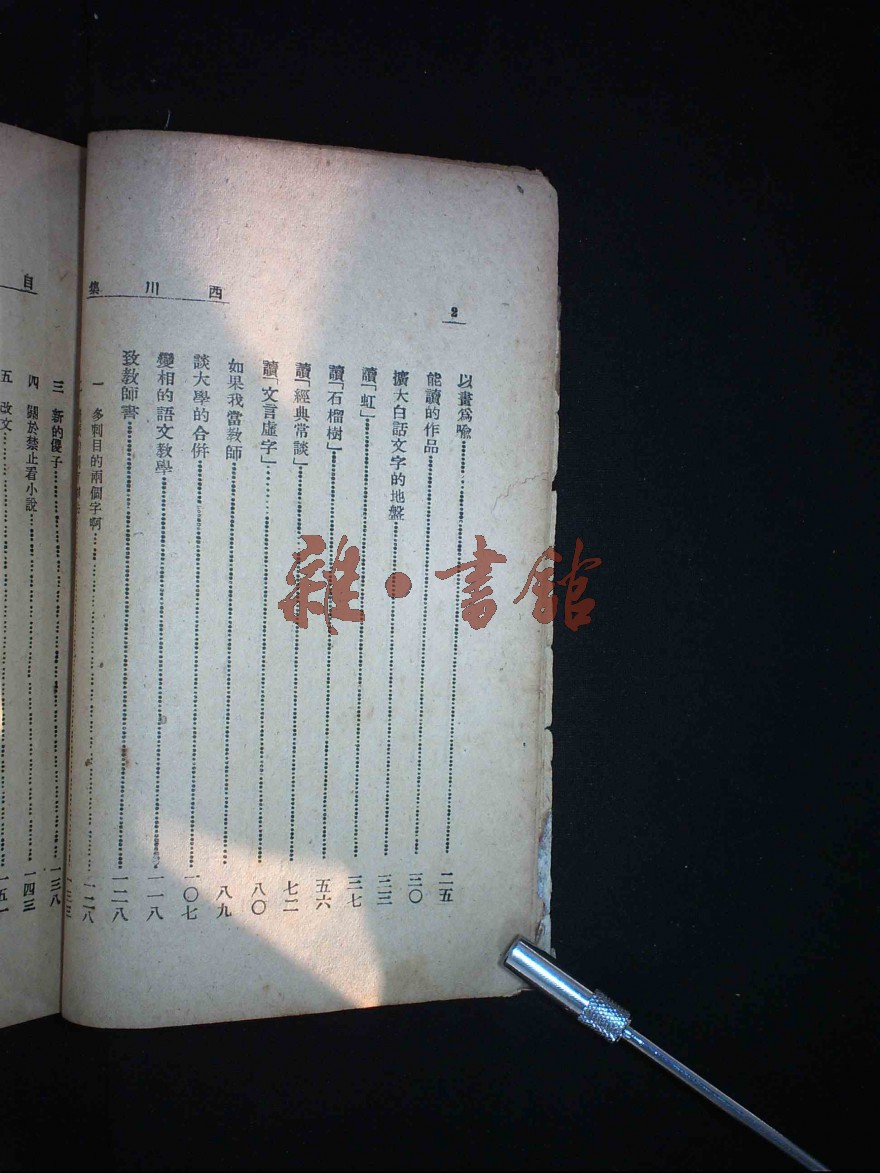 西川集
2
以畫爲喩 二五
能讀的作品 三〇
擴大白話文字的地盤 三三
讀「虹」 三七
讀「石榴樹」 五六
讀「經典常談」 七二
讀「文言虛字」 八〇
如果我當教師 八九
談大學的合併 一〇七
變相的語文教學 一一八
致教師書 一二八
一 多刺目的兩個字啊 一二八
一三三
三 新的傻子 一三八
四 關於禁止看小說 一四三
五 改文 一五一
自
雜·書館